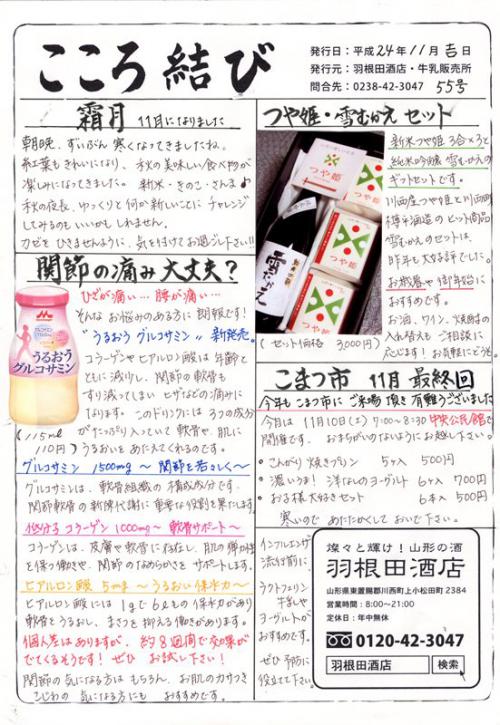 こころ結び
発行日：平成24年11月吉日
発行元：羽根田酒店・牛乳販売所
問合先：0238-42-3047 55号
霜月 11月になりました
朝晩、ずいぶん寒くなってきましたね。
紅葉もきれいになり、秋の美味しい食べ物が
楽しみになってきました。新米・きのこ・さんま♪
秋の夜長、ゆっくりと何か新しいことにチャレンジ
してみるのもいいかもしれません。
カゼをひきませんように、気を付けてお過ごし下さい!!
関節の痛み大丈夫？
ひざが痛い… 腰が痛い…
そんなお悩みのある方に朗報です！
"うるおうグルコサミン" 新発売。
コラーゲンやヒアルロン酸は年齢と
ともに減少し、関節の軟骨も
すり減ってしまいヒザなどの痛みに
なります。このドリンクには3つの成分
がたっぷり入っていて軟骨や、肌に
うるおいをあたえてくれるのです。
うるおう
グルコサミン
(115ml
110円)
グルコサミン 1500mg ～関節を若々しく～
グルコサミンは、軟骨組織の構成成分です。
関節軟骨の新陳代謝に重要な役割を果たします。
低分子コラーゲン 1000mg～ 軟骨サポート～
コラーゲンは、皮膚や軟骨に存在し、肌の弾力性
を保つ働きや、関節のなめらかさをサポートします。
ヒアルロン酸 5mg ～うるおい保水力～
ヒアルロン酸には1gで6ℓもの保水力があり
軟骨をうるおし、まさつを抑える働きがあります。
個人差はありますが、約8週間で効果が
でてくるそうです！ぜひ お試し下さい！
関節の気になる方はもちろん、お肌のカサつき
こじわの気になる方にも おすすめです。
つや姫・雪むかえセット
新米つや姫3合×3と
純米吟醸 雪むかえの
ギフトセットです。
川西産つや姫と川西町
樽平酒造のヒット商品
雪むかえのセットは、
昨年も大好評でした。
お歳暮や御年始に
おすすめです。
お酒、ワイン、焼酎の
入れ替えもご相談に
応じます！お気軽にどうぞ。
つや姫
つや姫
雪むかえ
(セット価格 3,000円)
こまつ市 11月 最終回
今年もこまつ市にご来場頂き有難うございました
今月は11月10日(土) 7:00～8:30 中央公民館で
開催です。おまちがいのないようにお越し下さい。
・こんがり焼きプリン 5ヶ入 500円
・濃いうま！洋なしのヨーグルト 6ヶ入 700円
・お子様大好きセット 6本入 500円
寒いので あたたかくして おいで下さい。
インフルエンザ
流行前に
ラクトフェリン
牛乳や
ヨーグルトが
おすすめです。
ぜひ予防に
役立て下さい。
燦々と輝け！山形の酒
羽根田酒店
山形県東置賜郡川西町上小松田町2384
営業時間：8:00～21:00
定休日：年中無休
0120-42-3047
羽根田酒店 検索